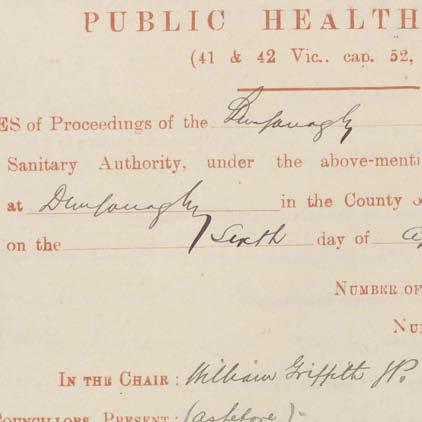 PUBLIC HEALTH
(41 & 42 Vic.. cap. 52,
ES of Proceedings of the Dunfanaghy
Sanitary Authority, under the above-menti
at Dunfanaghy in the County o
on the Sixth day of Ap
NUMBER OF
NU
IN THE CHAIR : William Griffith JP.
COUNCILLORS PRESENT :